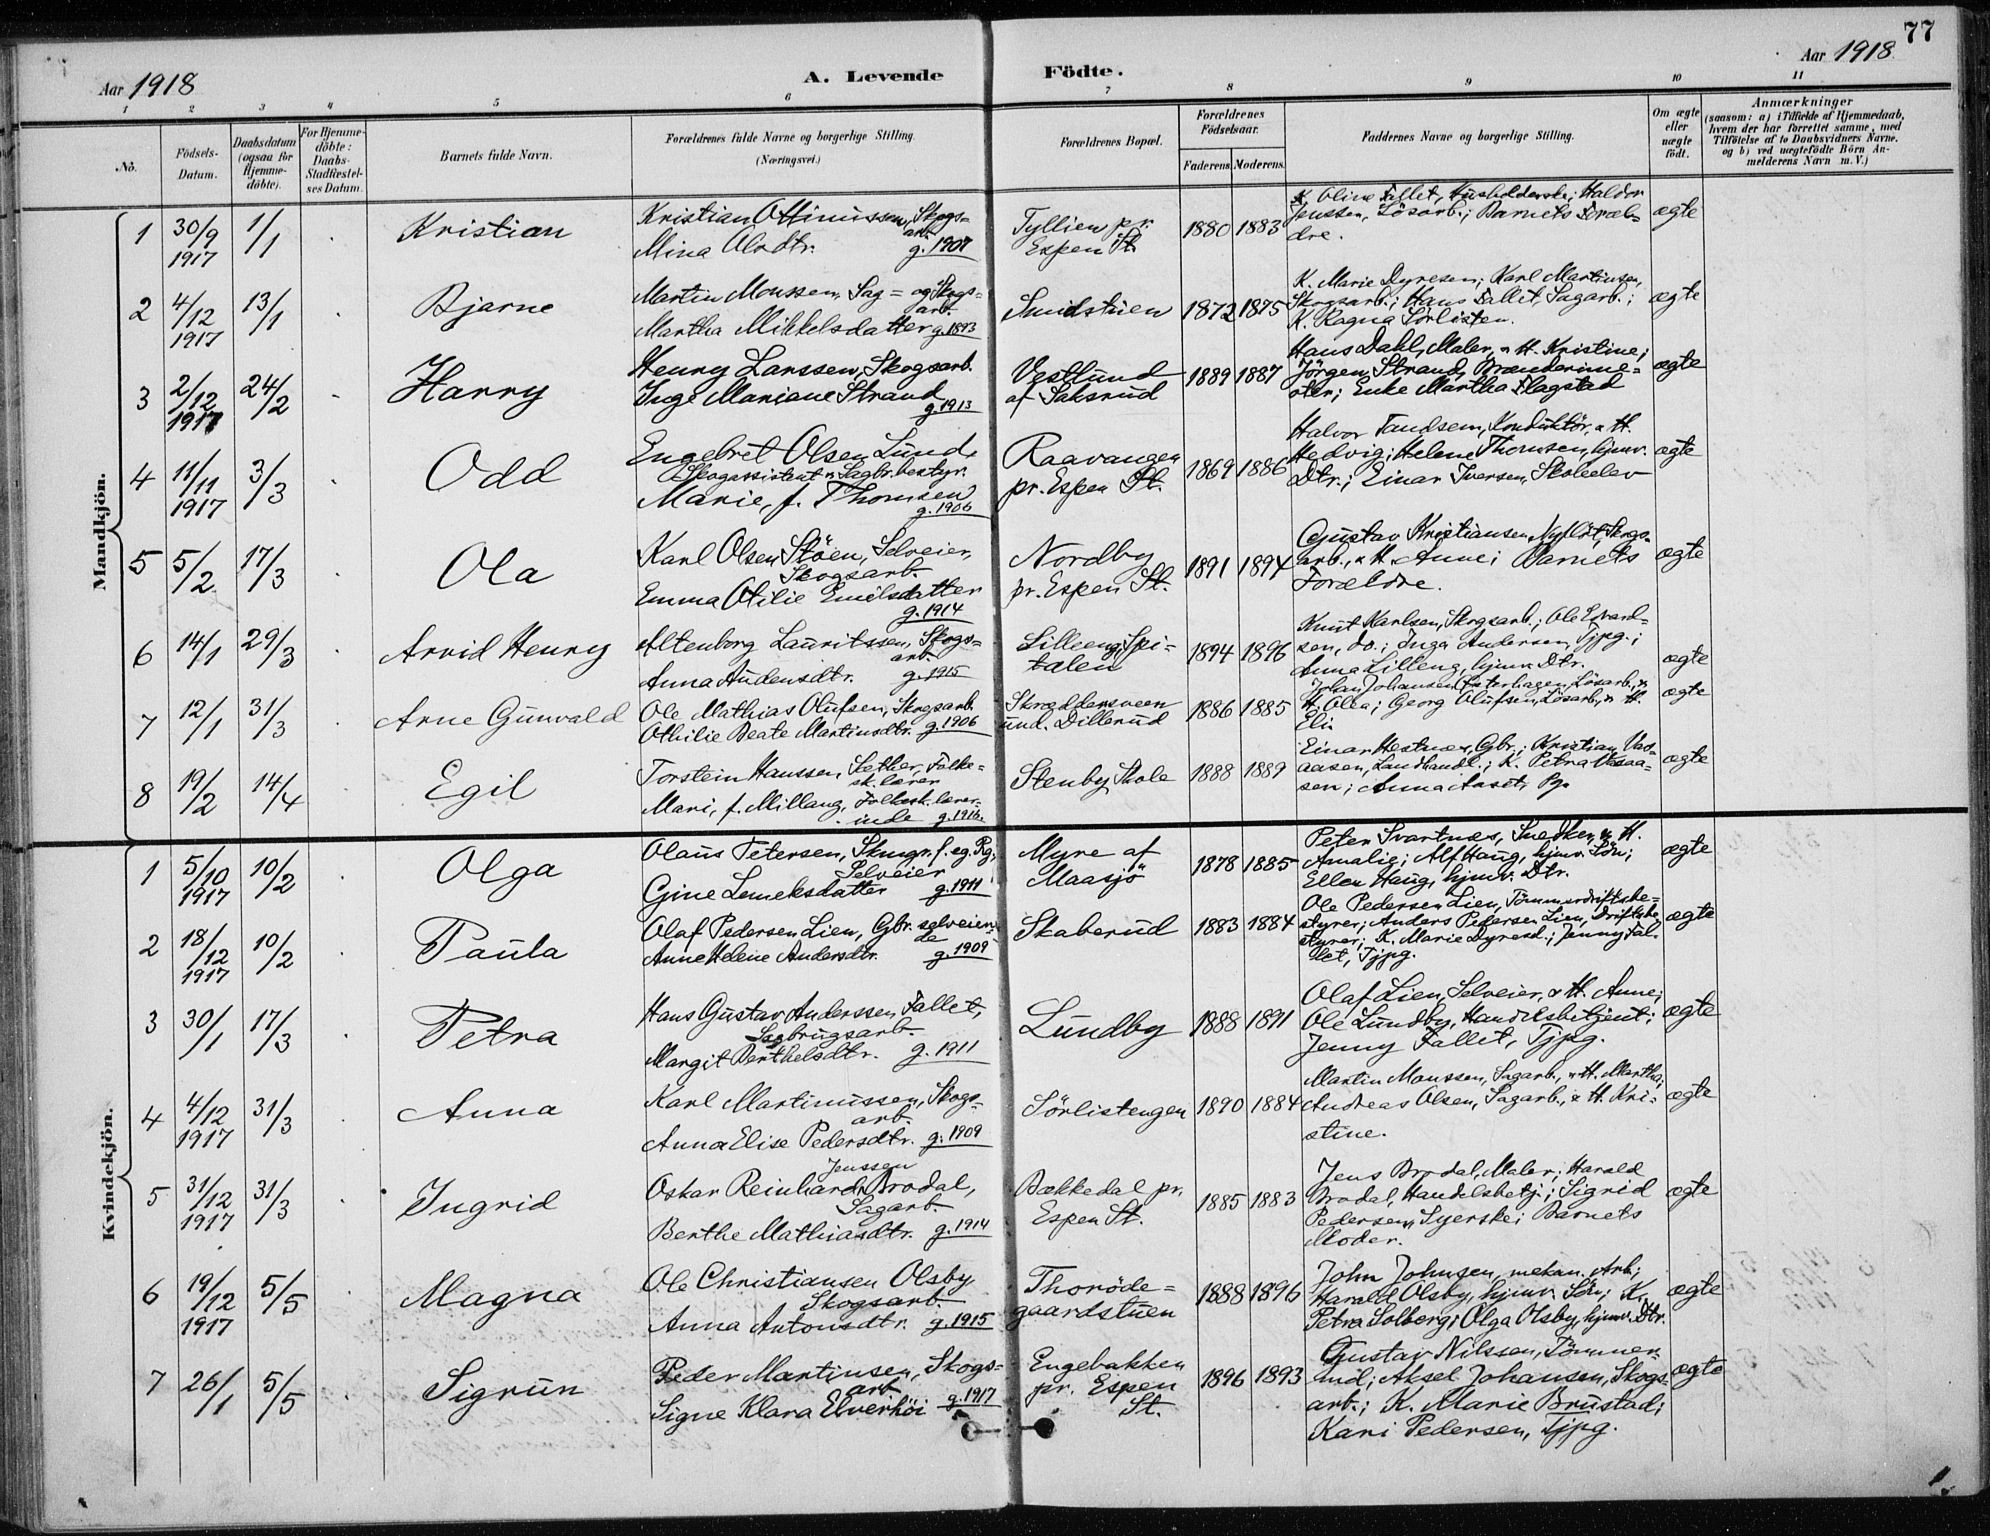 77
Aar 1918
A. Levende Födte.
Aar 1918
1 2 3 4 5 6 7 8 9 10 11
No.
Födsels-Datum.
Daabsdatum (ogsaa for Hjemme-döbte).
For Hjemme-döbte: Daabs-Stadfæstel-ses Datum.
Barnets fulde Navn.
Forældrenes fulde Navne og borgerlige Stilling. (Næringsvei.)
Forældrenes Bopæl.
Forældrenes Födselsaar.
Faderens. Moderens.
Faddernes Navne og borgerlige Stilling.
Om ægte eller uægte födt.
Anmærkninger
(saasom: a) i Tilfælde af Hjemmedaab,
hvem der har forrettet samme, med
Tilföielse af to Daabsvidners Navne.
og b) ved uægtefödte Börn An-
melderens Navn m. V.)
Mandkjön.
1 30/9 1917 1/1 Kristian
Kristian Ottinussen, Skogs=
arb.
Mina Olsdtr. g. 1907
Tyllien pr.
Espen St.
1880 1883
K. Oline Fallet, Husholderske; Haldor
Jenssen, Lösarb.; Barnets Foræl=
dre.
ægte
2 4/12 1917 13/1 Bjarne
Martin Monssen, Sag= og Skogs=
arb.
Martha Mikkelsdatter g. 1893
Smidstuen
1872 1875
K. Marie Dyresen; Karl Martinsen,
Skogsarb.; Hans Fallet, Sagarb.;
K. Ragna Sörlisten.
ægte
3 2/12 1917 24/2 Harry
Henry Larssen, Skogsarb.
Inga Mariane Strand
g. 1913
Vestlund
af Saksrud
1889 1887
Hans Dahl, Maler, & H. Kristine;
Jörgen Strand, Brænderime=
ster; Enke Martha Flagstad
ægte
4 11/11 1917 3/3 Odd
Engebret Olsen Lund,
Skogassistent & Sagbr.bestyr.
Marie, f. Thomsen
g. 1906
Raavangen
pr. Espen St.
1869 1886
Halvor Tandsem, Konduktör, & H.
Hedvig; Helene Thomsen, hjmv.
Dtr.; Einar Iversen, Skoleelev
ægte
5 5/2 17/3 Ola
Karl Olsen Stöen, Selveier,
Skogsarb.
Emma Otilie Emilsdatter
g. 1914
Nordby
pr. Espen St.
1891 1894
Gustav Kristiansen Nyflöt, Skogs-
arb., & H. Anne; Barnets
Forældre.
ægte
6 14/1 29/3 Arvid Henry
Altenborg Lauritssen, Skogs=
arb.
Anna Audensdtr. g. 1915
Lilleeng, Spi=
talen
1894 1896
Knut Karlsen, Skogsarb.; Ole Evard-
sen, do.; Inga Andersen, Tjpg.;
Anna Lilleng, hjmv. Dtr.
ægte
7 12/1 31/3 Arne Gunvald
Ole Mathias Olufsen, Skogsarb.
Othilie Beate Martinsdtr. g. 1906
Skræddersveen
und. Dillerud
1886 1885
Johan Johansen Esterhagen, Lösarb., &
H. Olea; Georg Olufsen, Lösarb., & H.
Eli.
ægte
8 19/2 14/4 Egil
Torstein Hanssen, Sether, Folke=
sk.lærer
Mari, f. Millang, Folkesk.lærer-
inde g. 1916.
Stenby Skole
1888 1889
Einar Hestnæs, Gbr.; Kristian Vas-
aasen, Landhandl.; K. Petra Vasaa=
sen; Anna Aaset, Pg.
ægte
Kvindekjön.
1 5/10 1917 10/2 Olga
Olaus Petersen, Skmgr. f. eg. Rg,
Selveier
Gine Lemeksdatter g. 1911
Myre af
Maasjö
1878 1885
Peter Svartnæs, Snedker, & H.
Amalie; Alf Haug, hjmv. Sön;
Ellen Haug, hjmv. Dtr.
ægte
2 18/12 1917 10/2 Paula
Olaf Pedersen Lien, Gbr. selveien-
de
Anne Helene Andersdtr. g. 1909
Skaberud
1883 1884
Ole Pedersen Lien, Tömmerdriftsbe=
styrer; Anders Pedersen Lien, Driftsbe
styrer; K. Marie Dyresd.; Jenny Fal-
let, Tjpg.
ægte
3 30/1 17/3 Petra
Hans Gustav Anderssen Fallet,
Sagbrugsarb.
Margit Berthelsdtr. g. 1911
Lundby
1888 1891
Olaf Lien, Selveier, & H. Anne;
Ole Lundby, Handelsbetjent;
Jenny Fallet, Tjpg.
ægte
4 4/12 1917 31/3 Anna
Karl Martinussen, Skogs-
arb.
Anna Elise Pedersdtr. g. 1909
Sörlistengen
1890 1884
Martin Monssen, Sagarb., & H. Martha;
Andreas Olsen, Sagarb., & H. Kri=
stine.
ægte
5 31/12 1917 31/3 Ingrid
Jenssen
Oskar Reinhardt Brodal,
Sagarb.
Berthe Mathiasdtr. g. 1914
Bækkedal pr.
Espen St.
1885 1883
Jens Brodal, Maler; Harald
Brodal, Handelsbetj.; Sigrid
Pedersen, Syerske; Barnets
Moder.
ægte
6 19/12 1917 5/5 Magna
Ole Christiansen Olsby
Skogsarb.
Anna Antonsdtr. g. 1915
Thoröde=
gaardstuen
1888 1896
John Johnsen, mekan. Arb.;
Harald Olsby, hjmv. Sön; K.
Petra Solberg; Olga Olsby, hjmv. Dtr.
ægte
7 26/1 5/5 Sigrun
Peder Martinsen, Skogs=
arb.
Signe Klara Elverhöi g. 1917
Engebakken
pr. Espen
St.
1896 1893
Gustav Nilssen, Tömmer-
md; Aksel Johansen, Skogs-
arb.; K. Marie Brustad;
Kari Pedersen, Tjpg.
ægte